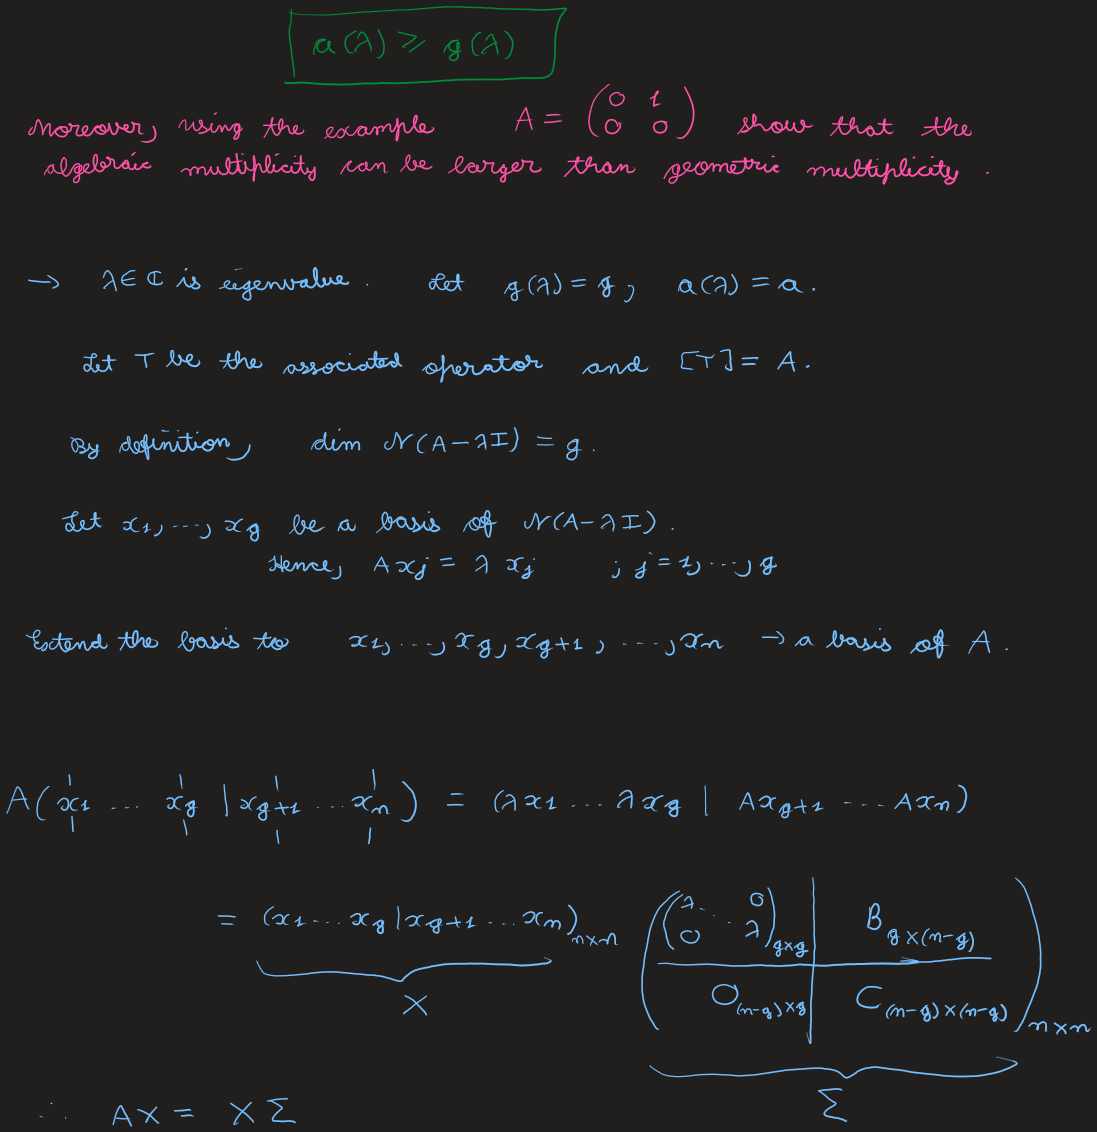 a(λ) ≥ g(λ)
Moreover, using the example A = (0 1 / 0 0) show that the
algebraic multiplicity can be larger than geometric multiplicity.
→ λ ∈ ℂ is eigenvalue. Let g(λ) = g, a(λ) = a.
Let T be the associated operator and [T] = A.
By definition, dim N(A − λI) = g.
Let x1, ..., xg be a basis of N(A − λI).
Hence, Axj = λ xj ; j = 1, ..., g
Extend the basis to x1, ..., xg, xg+1, ..., xn → a basis of A.
A(x1 ... xg | xg+1 ... xn) = (λx1 ... λxg | Axg+1 ... Axn)
= (x1 ... xg | xg+1 ... xn)n×n ((λ ... 0 / 0 ... λ)g×g | B g×(n−g) / O(n−g)×g | C(n−g)×(n−g))n×n
X
Σ
∴ AX = XΣ